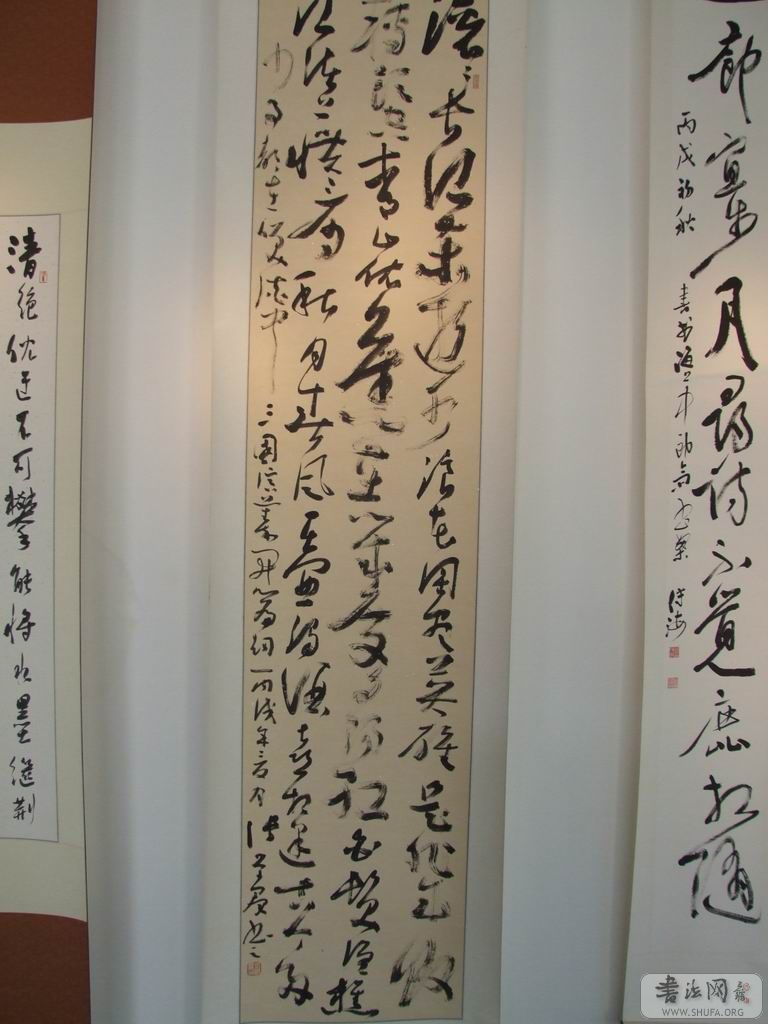 步月尋詩不覺鹿相隨
丙戌初秋
滚滚长江东逝水浪花淘尽英雄是非成败
转头空青山依旧在几度夕阳红白发渔樵
江渚上惯看秋月春风一壶浊酒喜相逢古今多
少事都在笑谈中 三国演义开篇词 丙戌年三月
清絕倪迂不可攀能將水墨繼荆
書法网
WWW.SHUFA.ORG